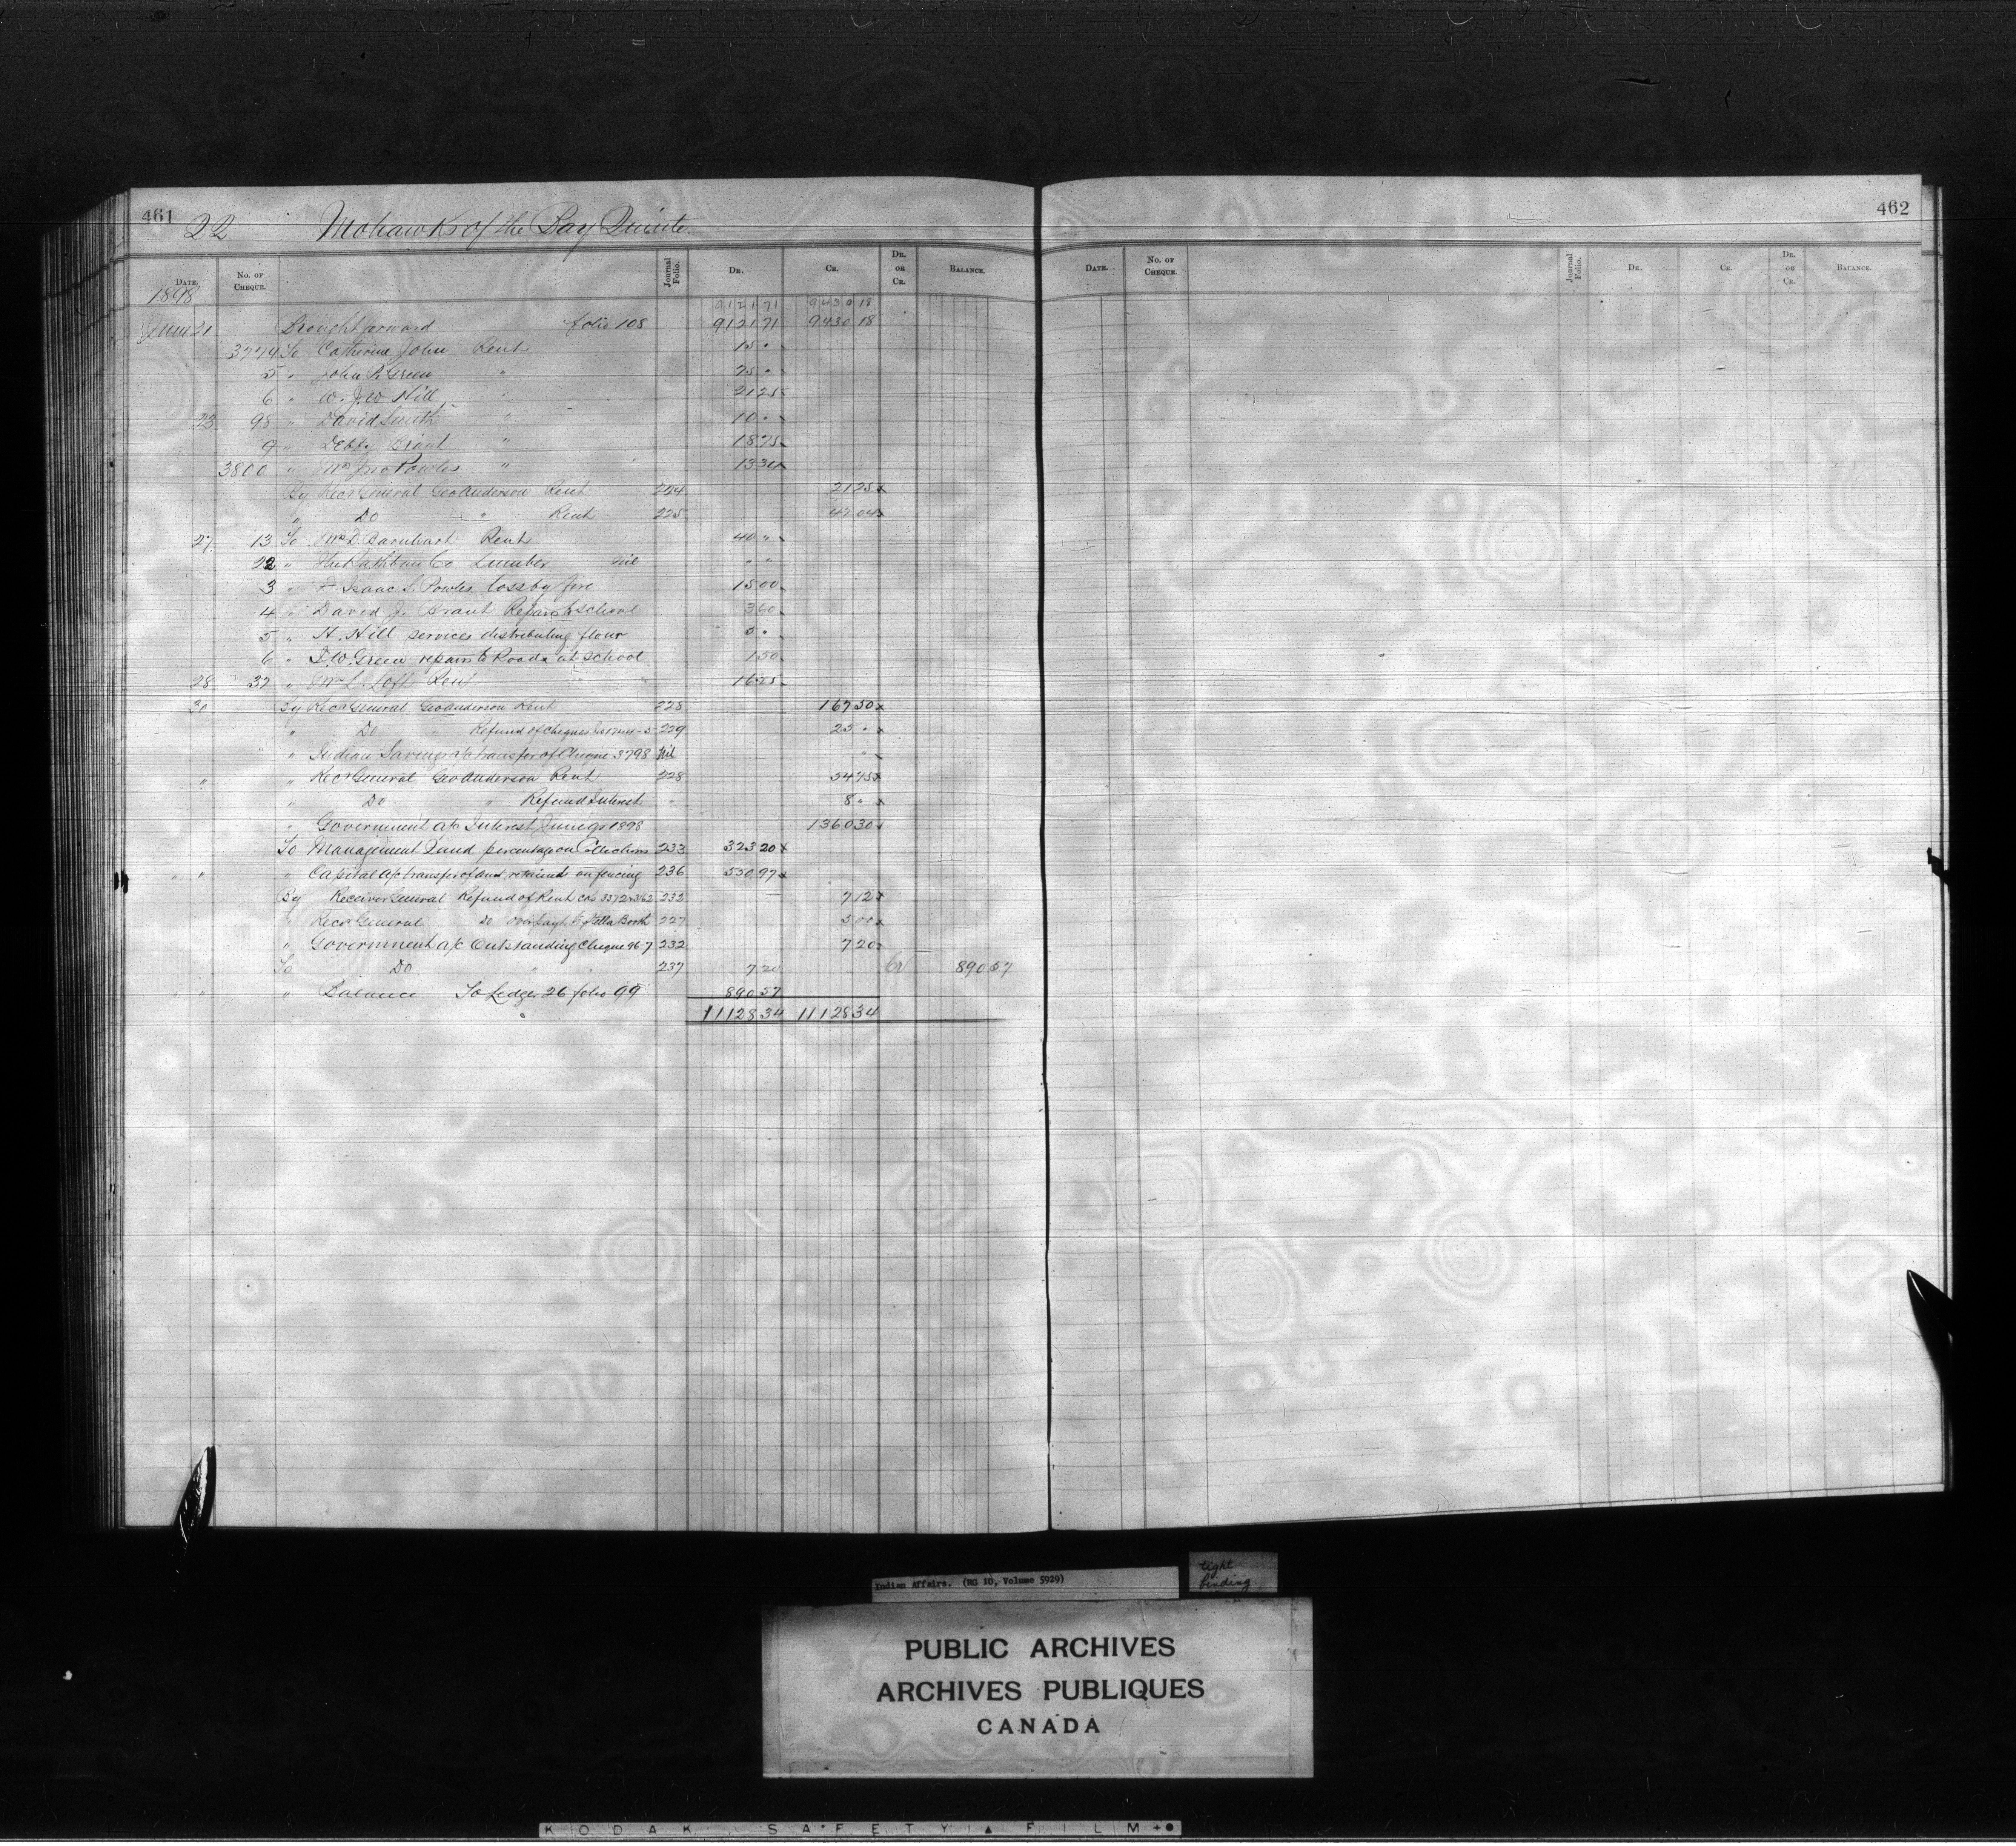 461
22 Mohawks of the Bay Quinte.
462
DATE. No. OF CHEQUE. Journal Folio. DR. CR. DR. OR CR. BALANCE. DATE. No. OF CHEQUE. Journal Folio. DR. CR. DR. OR CR. BALANCE.
1898
9121 71 9430 18
June 21 Brought forward folio 108 9121 71 9430 18
3774 To Catherine John Rent 15 "
5 " John P. Green " 25 "
6 " W. J. W. Hill " 21 25
23 98 " David Smith " 10 "
9 " Debby Brant " 18 75
3800 " Mrs Jno Powles " 13 34
By Recr General Geo Anderson Rent 224 21 25 x
" Do " Rent 225 42 04 x
27 13 To Mrs D. Barnhart Rent 40 "
22 " The Rathbun Co Lumber Nil " "
3 " Isaac S. Powles loss by fire 15 00
4 " David J. Brant Repairs to school 3 60
5 " H. Hill services distributing flour 5 "
6 " D. W. Green repairs to Roads at School 1 50
28 32 " Mrs L. Loft Rent 16 25
30 By Recr General Geo Anderson Rent 228 167 50 x
" Do " Refund of Cheques 229 25 " x
" Indian Savings a/c transfer of Cheque 3798 Nil "
" " Recr General Geo Anderson Rent 228 54 75 x
" Do " Refund Interest " 8 " x
" Government a/c Interest June qr 1898 1360 30
To Management Fund percentage on Collections 233 323 20 x
" " " Capital a/c transfer of amt. retained on fencing 236 550 97 x
By Receiver General Refund of Rent 232 7 12 x
" Recr General Do Over payt to Ella Booth 227 5 00 x
" Government a/c Outstanding Cheque 96-7 232 7 20
To Do " " 237 7 20 Cr 890 57
" " " Balance To Ledger 26 folio 99 890 57
11128 34 11128 34
Indian Affairs. (RG 10, Volume 5929)
tight binding
PUBLIC ARCHIVES
ARCHIVES PUBLIQUES
CANADA
KODAK SAFETY ▲ FILM